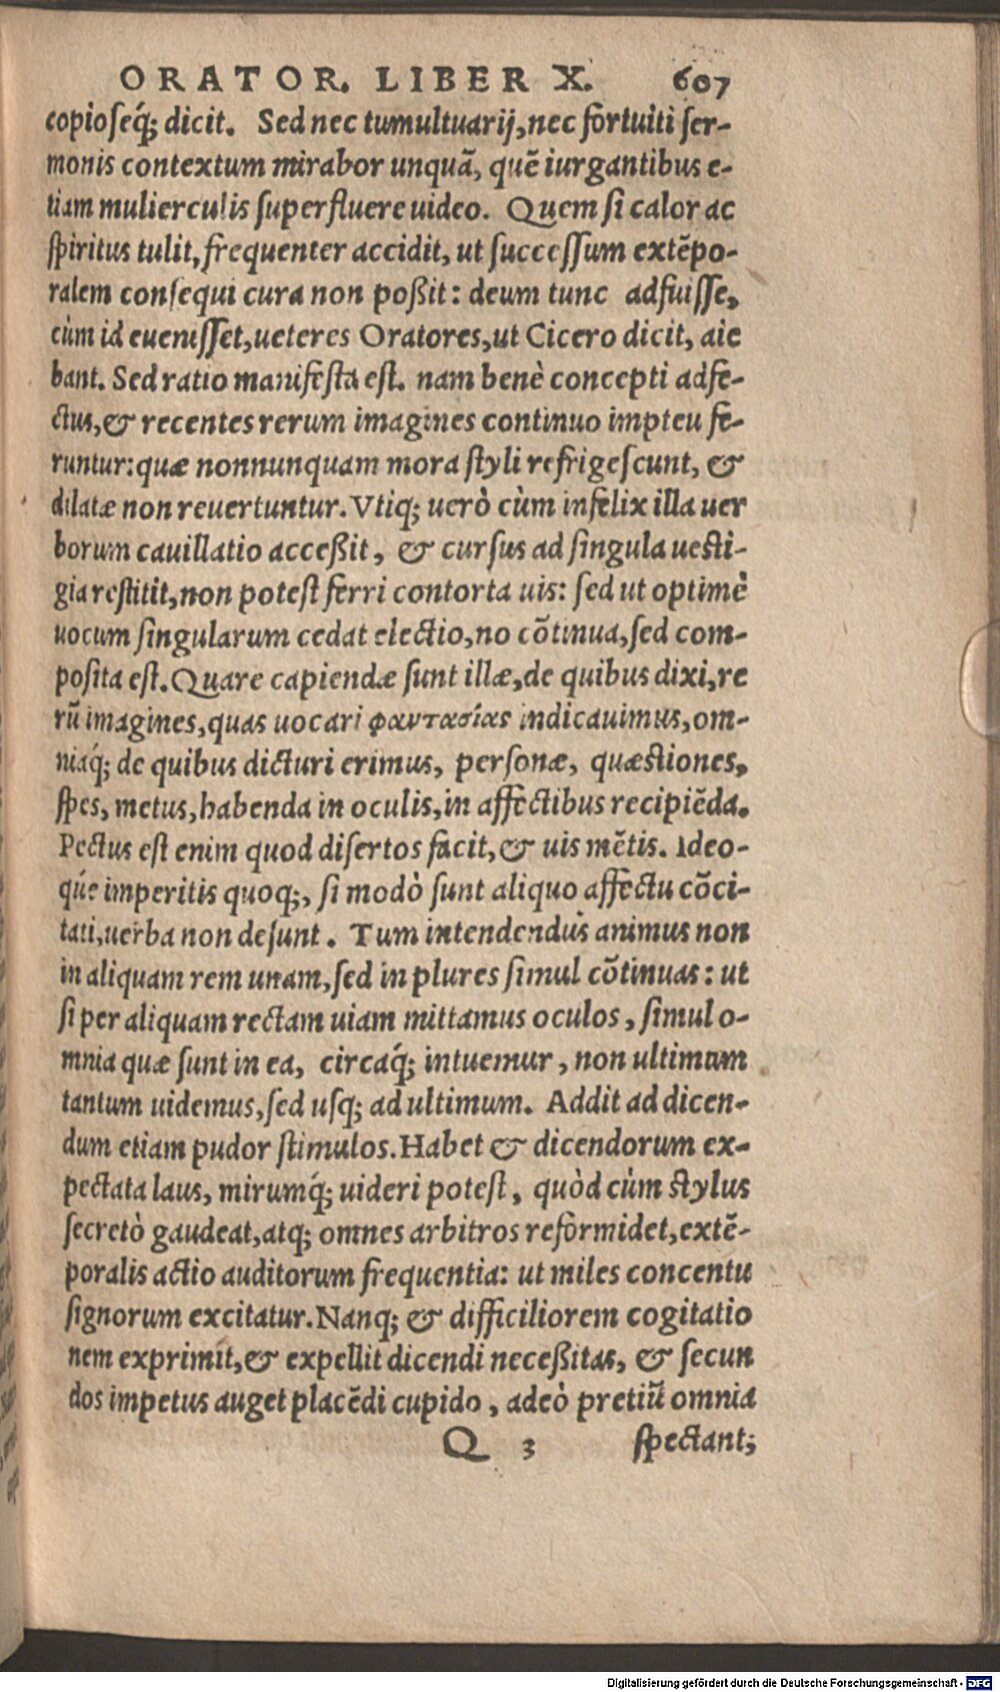 ORATOR. LIBER X. 607
copioſeq́; dicit. Sed nec tumultuarij, nec fortuiti ſer-
monis contextum mirabor unquã, quẽ iurgantibus e-
tiam mulierculis ſuperfluere uideo. Quem ſi calor ac
ſpiritus tulit, frequenter accidit, ut ſucceſſum extẽpo-
ralem conſequi cura non poßit: deum tunc adfuiſſe,
cùm id eueniſſet, ueteres Oratores, ut Cicero dicit, aie
bant. Sed ratio manifeſta eſt. nam benè concepti adfe-
ctus, & recentes rerum imagines continuo impteu fe-
runtur: quæ nonnunquam mora ſtyli refrigeſcunt, &
dilatæ non reuertuntur. Vtiq; uerò cùm infelix illa uer
borum cauillatio acceßit, & curſus ad ſingula ueſti-
gia reſtitit, non poteſt ferri contorta uis: ſed ut optimè
uocum ſingularum cedat electio, no cõtinua, ſed com-
poſita eſt. Quare capiendæ ſunt illæ, de quibus dixi, re
rũ imagines, quas uocari φαντασίας indicauimus, om-
niaq́; de quibus dicturi erimus, perſonæ, quæſtiones,
ſpes, metus, habenda in oculis, in affectibus recipiẽda.
Pectus eſt enim quod diſertos facit, & uis mẽtis. Ideo-
qúe imperitis quoq;, ſi modò ſunt aliquo affectu cõci-
tati, uerba non deſunt. Tum intendendus animus non
in aliquam rem unam, ſed in plures ſimul cõtinuas: ut
ſi per aliquam rectam uiam mittamus oculos, ſimul o-
mnia quæ ſunt in ea, circaq́; intuemur, non ultimum
tantum uidemus, ſed uſq; ad ultimum. Addit ad dicen-
dum etiam pudor ſtimulos. Habet & dicendorum ex-
pectata laus, mirumq́; uideri poteſt, quòd cùm ſtylus
ſecretò gaudeat, atq; omnes arbitros reformidet, extẽ-
poralis actio auditorum frequentia: ut miles concentu
ſignorum excitatur. Nanq; & difficiliorem cogitatio
nem exprimit, & expellit dicendi neceßitas, & ſecun
dos impetus auget placẽdi cupido, adeò pretiũ omnia
Q 3 ſpectant;
Digitalisierung gefördert durch die Deutsche Forschungsgemeinschaft - DFG